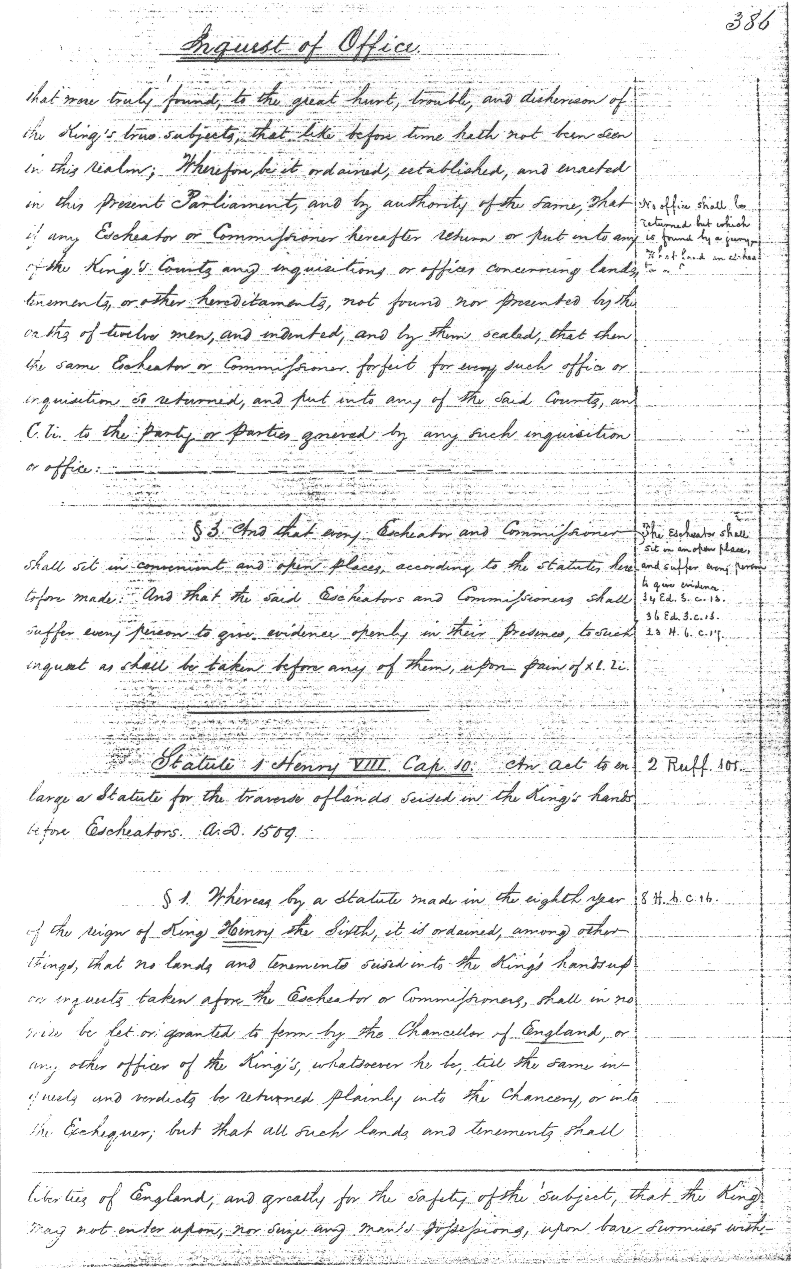 386
Inquest of Office.
that were truly found, to the great hurt, trouble, and disherison of
the King's true subjects, that like before time hath not been seen
in this realm; Wherefore be it ordained, established, and enacted
in this present Parliament, and by authority of the same, That
if any Escheator or Commissioner hereafter return or put into any
of the King's Courts any inquisitions or offices concerning lands,
tenements, or other hereditaments, not found nor presented by the
oaths of twelve men, and indented, and by them sealed, that then
the same Escheator or Commissioner forfeit for every such office or
inquisition so returned, and put into any of the said Courts, an
C. li. to the party or parties grieved by any such inquisition
or office:
No office shall be
returned but which
is found by a jury.
§ 3. And that every Escheator and Commissioner
shall sit in convenient and open places, according to the statutes, here-
tofore made: And that the said Escheators and Commissioners shall
suffer every person to give evidence openly in their presence, to such
inquest as shall be taken before any of them, upon pain of xl. li.
The Escheator shall
sit in an open place,
and suffer every person
to give evidence
34 Ed. 3. c. 13.
36 Ed. 3. c. 13.
23 H. 6. c. 17.
Statute 1 Henry VIII. Cap. 10. An act to en-
large a Statute for the traverse of lands seised in the King's hands
before Escheators. A.D. 1509.
2 Ruff. 101.
§ 1. Whereas by a statute made in the eighth year
of the reign of King Henry the Sixth, it is ordained, among other
things, that no lands and tenements seised into the King's hands up-
on inquests taken afore the Escheator or Commissioners, shall in no
wise be let or granted to ferm by the Chancellor of England, or
any other officer of the King's, whatsoever he be, till the same in-
quests and verdicts be returned plainly into the Chancery, or into
the Exchequer; but that all such lands and tenements shall
8 H. 6. c. 16.
liberties of England, and greatly for the safety of the subject, that the King
may not enter upon, nor seize any man's possessions, upon bare surmises with-